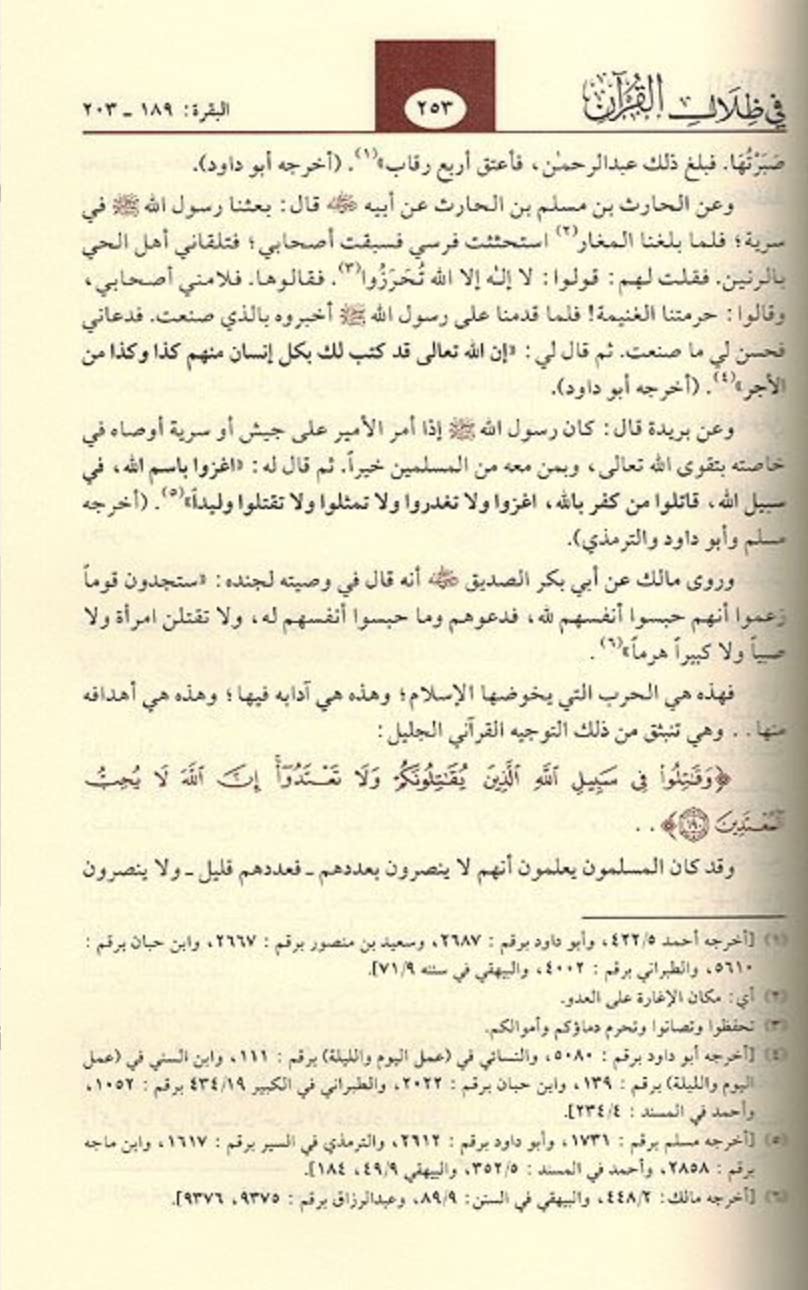 في ظلال القرآن
٢٥٣
البقرة: ١٨٩ ـ ٢٠٣
صَبَرْتُهَا. فبلغ ذلك عبدالرحمٰن، فأعتق أربع رقاب»(١). (أخرجه أبو داود).
وعن الحارث بن مسلم بن الحارث عن أبيه رضي الله عنه قال: بعثنا رسول الله ﷺ في
سرية؛ فلما بلغنا المغار(٢) استحثثت فرسي فسبقت أصحابي؛ فتلقاني أهل الحي
بالرنين. فقلت لهم: قولوا: لا إلٰه إلا الله تُحَرَزُوا(٣). فقالوها. فلامني أصحابي،
وقالوا: حرمتنا الغنيمة! فلما قدمنا على رسول الله ﷺ أخبروه بالذي صنعت. فدعاني
فحسن لي ما صنعت. ثم قال لي: «إن الله تعالى قد كتب لك بكل إنسان منهم كذا وكذا من
الأجر»(٤). (أخرجه أبو داود).
وعن بريدة قال: كان رسول الله ﷺ إذا أمر الأمير على جيش أو سرية أوصاه في
خاصته بتقوى الله تعالى، وبمن معه من المسلمين خيراً. ثم قال له: «اغزوا باسم الله، في
سبيل الله، قاتلوا من كفر بالله، اغزوا ولا تغدروا ولا تمثلوا ولا تقتلوا وليداً»(٥). (أخرجه
مسلم وأبو داود والترمذي).
وروى مالك عن أبي بكر الصديق رضي الله عنه أنه قال في وصيته لجنده: «ستجدون قوماً
زعموا أنهم حبسوا أنفسهم لله، فدعوهم وما حبسوا أنفسهم له، ولا تقتلن امرأة ولا
صبياً ولا كبيراً هرماً»(٦).
فهذه هي الحرب التي يخوضها الإسلام؛ وهذه هي آدابه فيها؛ وهذه هي أهدافه
منها.. وهي تنبثق من ذلك التوجيه القرآني الجليل:
﴿وَقَٰتِلُوا۟ فِى سَبِيلِ ٱللَّهِ ٱلَّذِينَ يُقَٰتِلُونَكُمْ وَلَا تَعْتَدُوٓا۟ إِنَّ ٱللَّهَ لَا يُحِبُّ
ٱلْمُعْتَدِينَ ١٩٠﴾..
وقد كان المسلمون يعلمون أنهم لا ينصرون بعددهم ـ فعددهم قليل ـ ولا ينصرون
(١) [أخرجه أحمد ٤٢٢/٥، وأبو داود برقم: ٢٦٨٧، وسعيد بن منصور برقم: ٢٦٦٧، وابن حبان برقم:
٥٦١٠، والطبراني برقم: ٤٠٠٢، والبيهقي في سننه ٧١/٩].
(٢) أي: مكان الإغارة على العدو.
(٣) تحفظوا وتصانوا وتحرم دماؤكم وأموالكم.
(٤) [أخرجه أبو داود برقم: ٥٠٨٠، والنسائي في (عمل اليوم والليلة) برقم: ١١١، وابن السني في (عمل
اليوم والليلة) برقم: ١٣٩، وابن حبان برقم: ٢٠٢٢، والطبراني في الكبير ٤٣٤/١٩ برقم: ١٠٥٢،
وأحمد في المسند: ٢٣٤/٤].
(٥) [أخرجه مسلم برقم: ١٧٣١، وأبو داود برقم: ٢٦١٢، والترمذي في السير برقم: ١٦١٧، وابن ماجه
برقم: ٢٨٥٨، وأحمد في المسند: ٣٥٢/٥، والبيهقي ٤٩/٩، ١٨٤].
(٦) [أخرجه مالك: ٤٤٨/٢، والبيهقي في السنن: ٨٩/٩، وعبدالرزاق برقم: ٩٣٧٥، ٩٣٧٦].